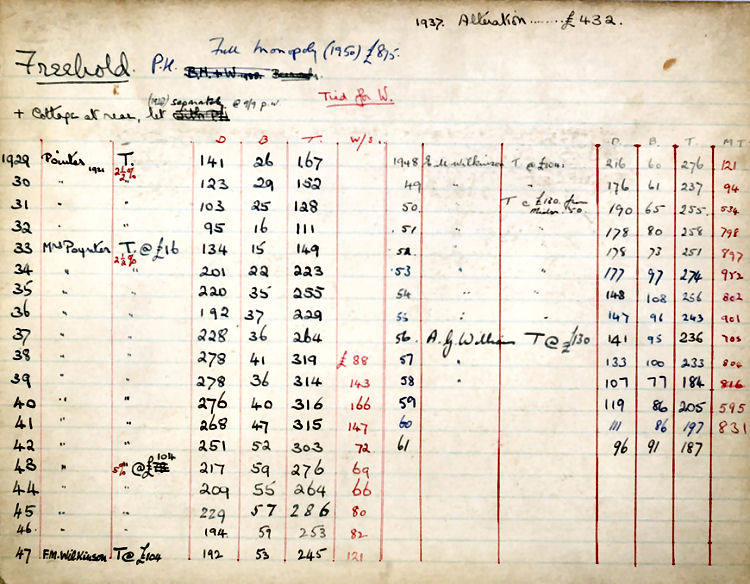 1937. Alteration ........ £432.
Full Monopoly (1950) £875.
Freehold. P.H.
(1920) separately @ 9/9 p.w.
Tied for W.
+ Cottage at rear, let
D B T W/S. D. B. T. MT
1929 Pointer 1921 T. 2½% 141 26 167 1948 E M Wilkinson T @ £104: 216 60 276 121
30 " " 123 29 152 49 " " 176 61 237 94
31 " " 103 25 128 50. " T @ £130. from 50. 190 65 255 534
32 " " 95 16 111 51 " " 178 80 258 798
33 Mrs Poynter T. @ £16 2½% 134 15 149 52 " " 178 73 251 897
34 " " 201 22 223 53 " " 177 97 274 982
35 " " 220 35 255 54 " " 148 108 256 802
36 " " 192 37 229 55 " " 147 96 243 901
37 " " 228 36 264 56. A. G. William T @ £130 141 95 236 705
38 " " 278 41 319 £88 57 " 133 100 233 804
39 " " 278 36 314 143 58 " 107 77 184 816
40 " " 276 40 316 166 59 119 86 205 595
41 " " 268 47 315 147 60 111 86 197 831
42 " " 251 52 303 72 61 96 91 187
43 " 5% " @ £104 217 59 276 69
44 " " 209 55 264 66
45 " " 229 57 286 80
46. " " 194 59 253 82
47 F.M. Wilkinson T @ £104 192 53 245 121